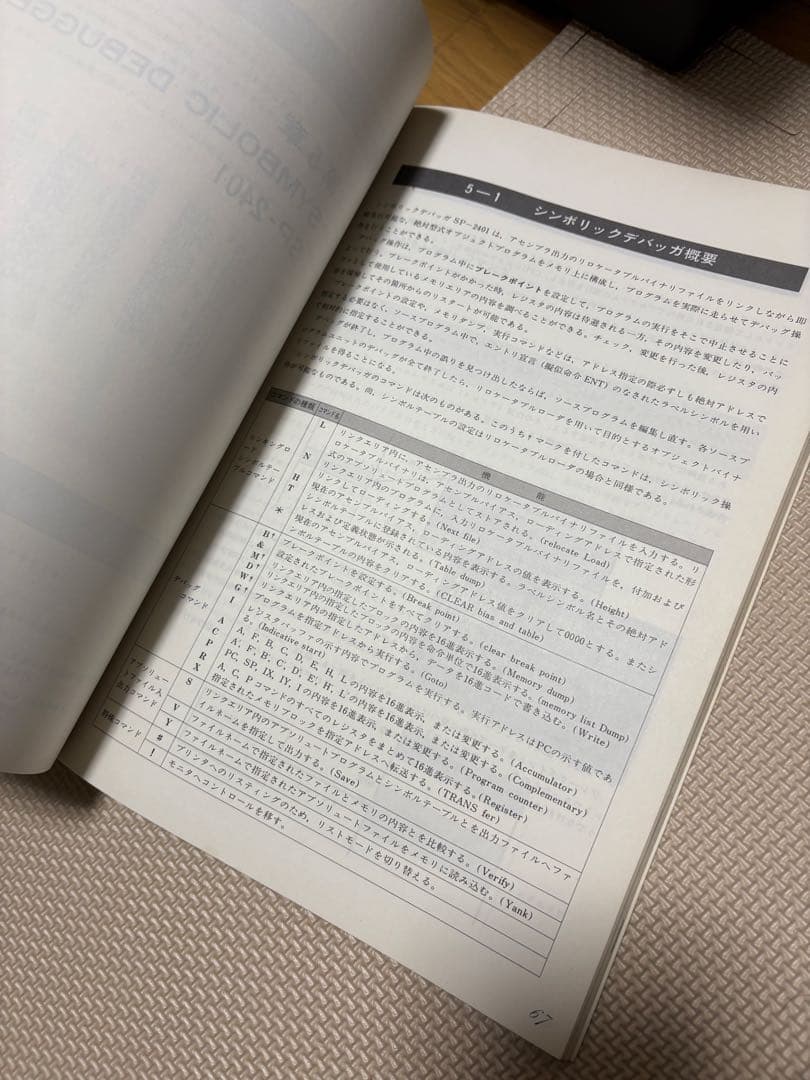 5－1 シンボリックデバッガ概要
シンボリックデバッガ SP－2401 は，アセンブラ出力のリロケータブルバイナリファイルをリンクしながら即
絶対型式オブジェクトプログラムをメモリ上に構成し，プログラムを実際に走らせてデバッグ操
作を行うことができる。
デバッグ操作は，プログラム中にブレークポイントを設定して，プログラムの実行をそこで中止させることに
ブレークポイントがかかった時，レジスタの内容は待避される一方，その内容を変更したり，バッ
使用しているメモリエリアの内容を調べることができる。チェック，変更を行った後，レジスタの内
してその箇所からのリスタートが可能である。
ブレークポイントの設定や，メモリダンプ，実行コマンドなどは，アドレス指定の際必ずしも絶対アドレスで
指定する必要はなく，ソースプログラム中で，エントリ宣言（擬似命令 ENT）のなされたラベルシンボルを用い
に指定することができる。
が終了し，プログラム中の誤りを見つけ出したならば，ソースプログラムを編集し直す。各ソースプ
ユニットのデバッグが全て終了したら，リロケータブルローダを用いて目的とするオブジェクトバイナ
リファイルを得ることになる。
シンボリックデバッガのコマンドは次のものがある。このうち↑マークを付したコマンドは，シンボリック操
作が可能なものである。尚，シンボルテーブルの設定はリロケータブルローダの場合と同様である。
コマンドの種類 コマンド名 機 能
シンボルテー
ブルコマンド
L リンクエリア内に，アセンブラ出力のリロケータブルバイナリファイルを入力する。リ
ロケータブルバイナリは，アセンブルバイアス，ローディングアドレスで指定された形
式のアブソリュートプログラムとしてストアされる。(relocate Load)
N リンクエリア内のプログラムに，入力リロケータブルバイナリファイルを，付加および
リンクしてローディングする。(Next file)
H 現在のアセンブルバイアス，ローディングアドレスの値を表示する。(Height)
T シンボルテーブルに登録されている内容を表示する。ラベルシンボル名とその絶対アド
レスおよび定義状態が示される。(Table dump)
* 現在のアセンブルバイアス，ローディングアドレス値をクリアして0000とする。またシ
ンボルテーブルの内容をクリアする。(CLEAR bias and table)
デバッグ
コマンド
B↑ ブレークポイントを設定する。(Break point)
& 設定されたブレークポイントをすべてクリアする。(clear break point)
M↑ リンクエリア内の指定したブロックの内容を16進表示する。(Memory dump)
D↑ リンクエリア内の指定したブロックの内容を命令単位で16進表示する。(memory list Dump)
W↑ リンクエリア内の指定したアドレスから，データを16進コードで書き込む。(Write)
G↑ プログラムを指定アドレスから実行する。(Goto)
I レジスタバッファの示す内容でプログラムを実行する。実行アドレスはPCの示す値であ
る。(Indicative start)
A A, F, B, C, D, E, H, L の内容を16進表示，または変更する。(Accumulator)
C A', F', B', C', D', E', H', L' の内容を16進表示，または変更する。(Complementary)
P PC, SP, IX, IY, I の内容を16進表示，または変更する。(Program counter)
R A, C, P コマンドのすべてのレジスタをまとめて16進表示する。(Register)
X 指定されたメモリブロックを指定アドレスへ転送する。(TRANS fer)
アブソリュー
トファイル入
出力コマンド
S リンクエリア内のアブソリュートプログラムとシンボルテーブルとを出力ファイルへファ
イルネームを指定して出力する。(Save)
V ファイルネームで指定されたファイルとメモリの内容とを比較する。(Verify)
Y ファイルネームで指定されたアブソリュートファイルをメモリに読み込む。(Yank)
特殊コマンド
# プリンタへのリスティングのため，リストモードを切り替える。
! モニタへコントロールを移す。
67